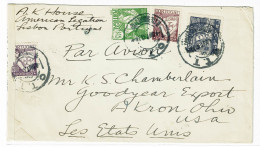 A. K. House
American Legation
Lisbon Portugal
Par Avion
Mr K. S. Chamberlain
Goodyear Export
Akron Ohio
USA
Les Etats Unis